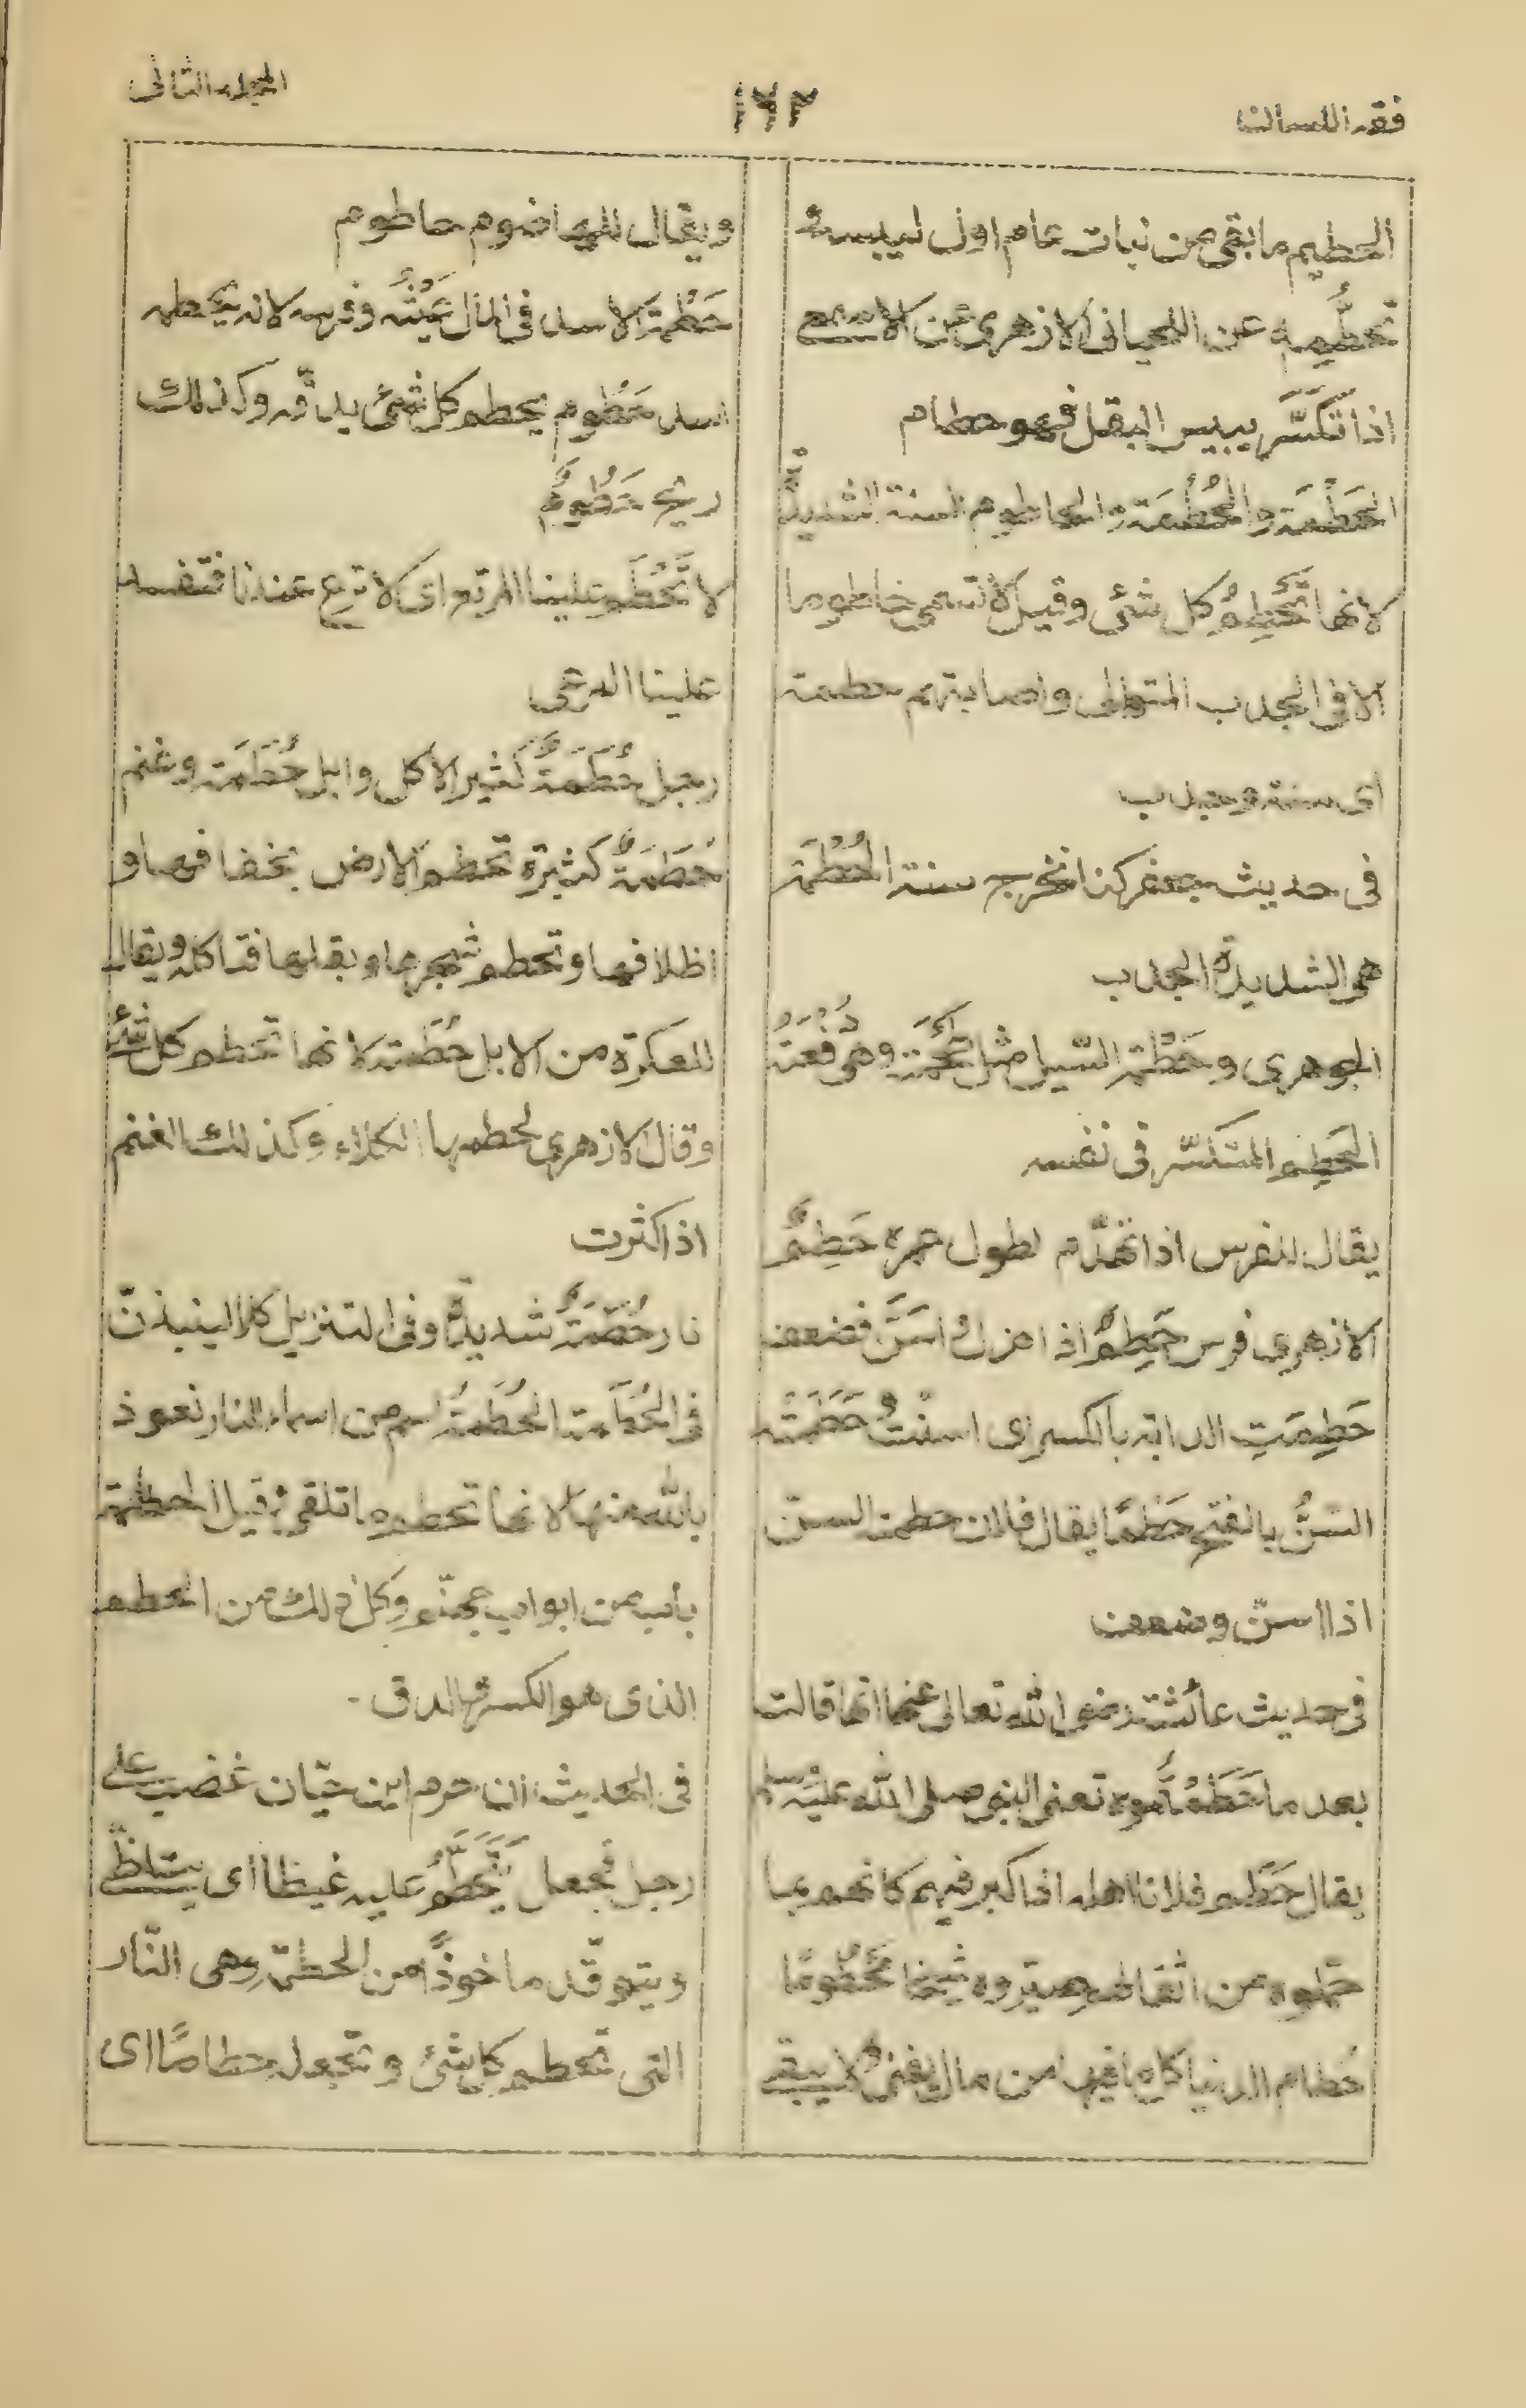 فقہ اللسان
۱۲۳
المجلد الثانی
الحطیم ما بقی من نبات عام اول لیبسہ و
تحطُّمِہ عن اللحیانی الازھری عن الاصمعی
اذا تَکَسَّرَ یبیس البقل فھو حطام
الحَطْمَۃ والحُطْمَۃ والحاطوم السنۃ الشدیدۃ
لانھا تَحْطِمُ کل شئ وقیل لا تسمی حاطوما
الا فی الجدب المتوالی واصابتھم حطمۃ
ای سنۃ وجدب
فی حدیث جعفر کنا نخرج سنۃ الحُطْمَۃ
ھی الشدیدۃ الجدب
الجوھری وحَطْمَۃ السّیل مثل طَحْمَتہ وھی دُفْعَتُہ
الحَطِم المتکسّر فی نفسہ
یقال للفرس اذا تھدّم لطول عمرہ حَطِمٌ
الازھری فرس حَطِمٌ اذا ھزل و اسَنَّ فضعف
حَطِمَتِ الدابۃ بالکسر ای اسنّتْ وحَطَمَتْہ
السّنُّ بالفتح حَطْمًا یقال فلان حطمتہ السنّ
اذا اسنّ وضعف
فی حدیث عائشۃ رضی اللہ تعالی عنہا انھا قالت
بعد ما حَطَمْتُموہ تعنی النبی صلی اللہ علیہ وسلم
یقال حَطَم فلانا اھلہ اذا کبر فیہم کانھم بما
حمّلوہ من اثقالھم صیّروہ شیخا مَحْطُومًا
حُطام الدنیا کل ما فیہا من مال یفنی ولا یبقی
ویقال للھاضوم حاطوم
حَطْمَۃُ الاسد فی المال عَیْثُہ وفرسہ لانہ یَحْطِمہ
اسد حَطُوم یحطم کل شئ یدقّہ وکذلک
ریح حَطُومٌ
لا تَحْطِم علینا المرتع ای لا ترع عندنا فتفسد
علینا المرعی
رجل حُطَمَۃٌ کثیر الاکل وابل حُطَمَۃ وغنم
حُطَمَۃٌ کثیرۃ تحطم الارض بخفافھا و
اظلافھا وتحطم شجرھا وبقلھا فتاکلہ ویقال
للعکرۃ من الابل حُطَمَۃ لانھا تحطم کل شئ
وقال الازھری لحطمہا الکلاء وکذلک الغنم
اذا کثرت
نار حُطَمَۃٌ شدیدۃ وفی التنزیل کلا لینبذنّ
فی الحُطَمَۃ الحُطَمَۃُ اسم من اسماء النار نعوذ
باللہ منہا لانھا تحطم ما تلقی وقیل الحطمۃ
باب من ابواب جہنّم وکل ذلک من الحطم
الذی ھو الکسر والدق ۔
فی الحدیث ان ھرم ابن حیّان غضب علی
رجل فجعل یَتَحَطَّمُ علیہ غیظا ای یتلظّی
ویتوقّد ماخوذًا من الحطمۃ وھی النّار
التی تحطم کل شئ وتجعلہ حطامًا ای